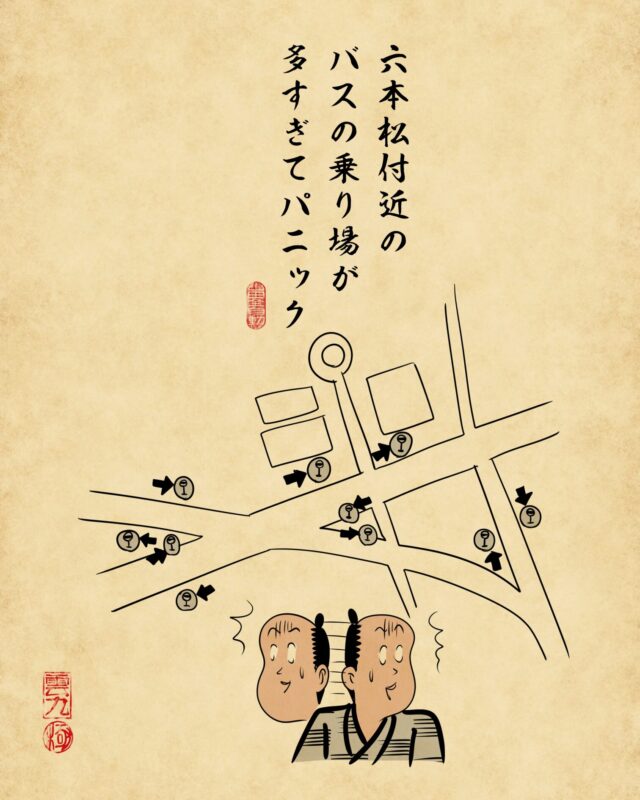 六本松付近の
バスの乗り場が
多すぎてパニック